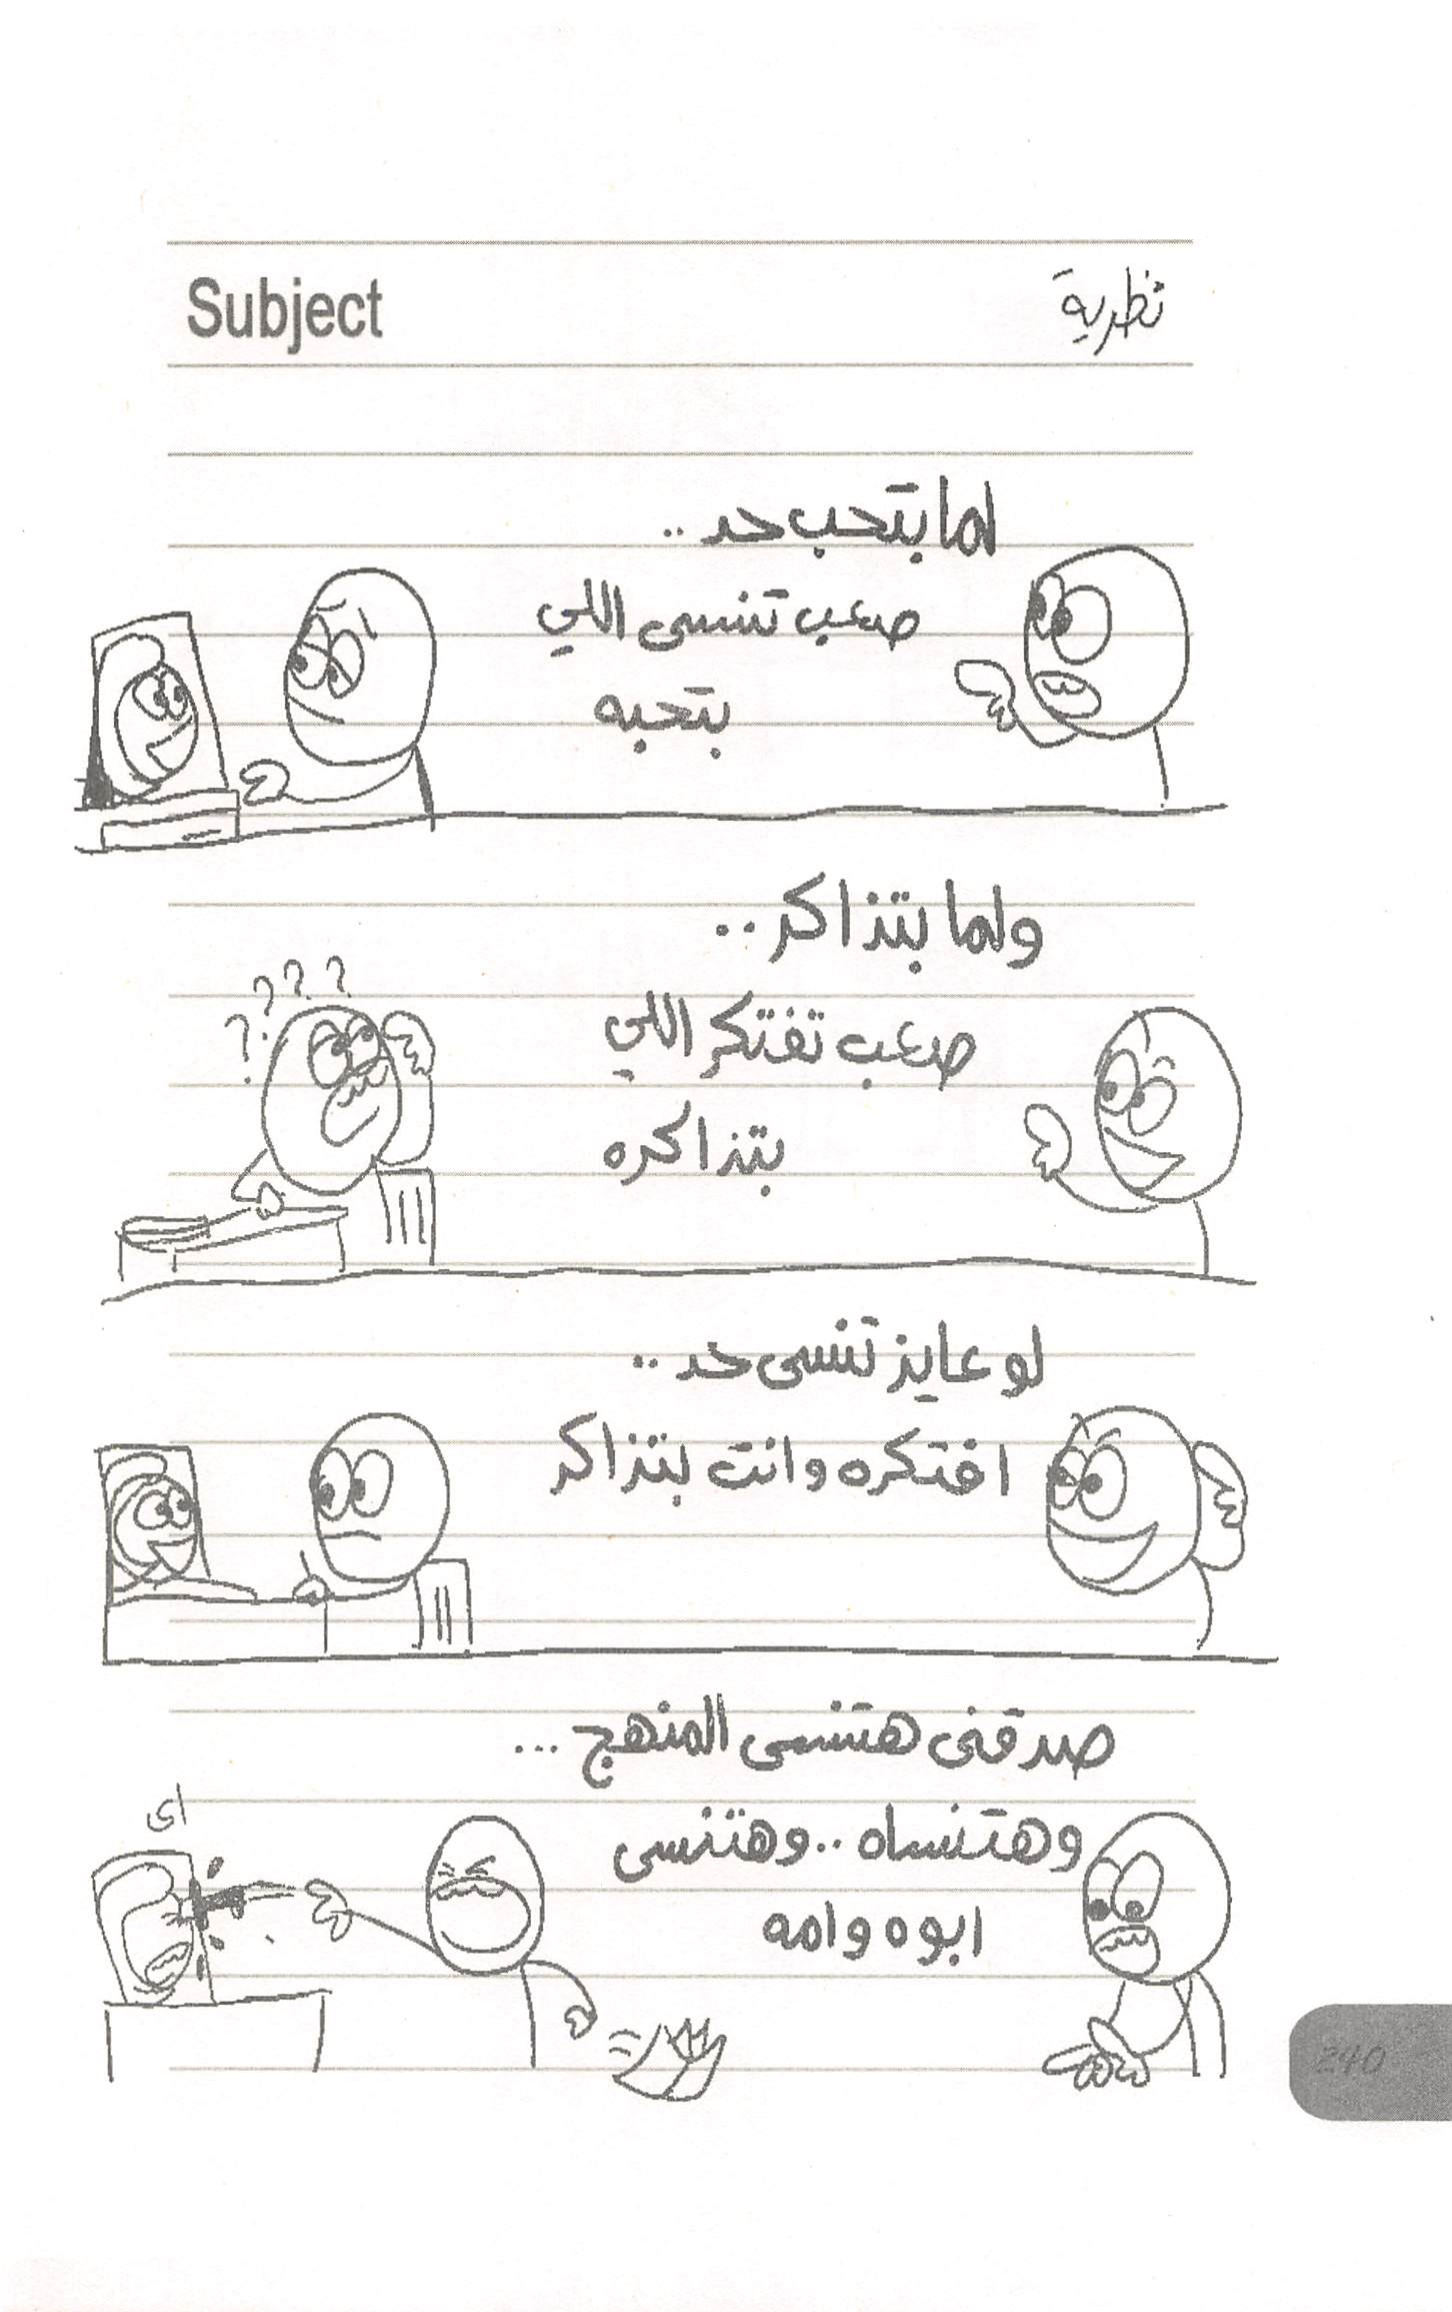 Subject
نظرية
لما بتحب حد..
صعب تنسى اللي
بتحبه
ولما بتذاكر..
صعب تفتكر اللي
بتذاكره
? ? ? ?
لو عايز تنسى حد..
افتكره وانت بتذاكر
صدقنى هتنسى المنهج ...
وهتنساه..وهتنسى
ابوه وامه
اى
240